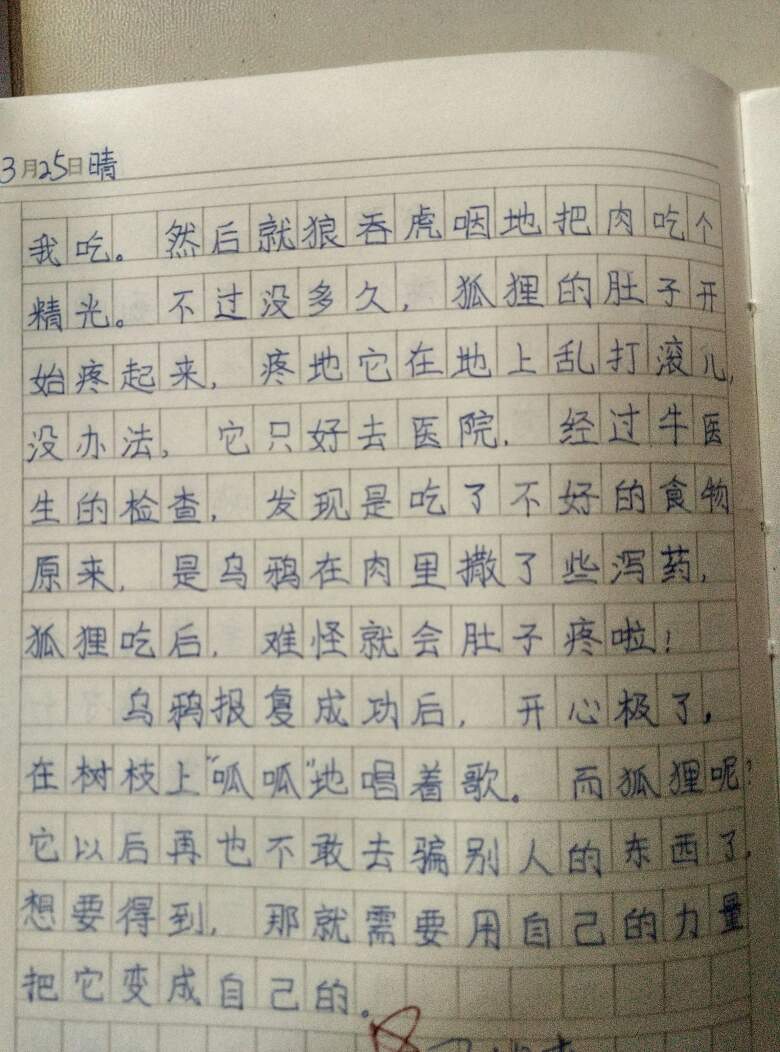 3月25日晴
我吃。然后就狼吞虎咽地把肉吃个
精光。不过没多久，狐狸的肚子开
始疼起来，疼地它在地上乱打滚儿，
没办法，它只好去医院．经过牛医
生的检查，发现是吃了不好的食物
原来，是乌鸦在肉里撒了些泻药，
狐狸吃后，难怪就会肚子疼啦！
乌鸦报复成功后，开心极了，
在树枝上“呱呱”地唱着歌。而狐狸呢？
它以后再也不敢去骗别人的东西了，
想要得到，那就需要用自己的力量
把它变成自己的。